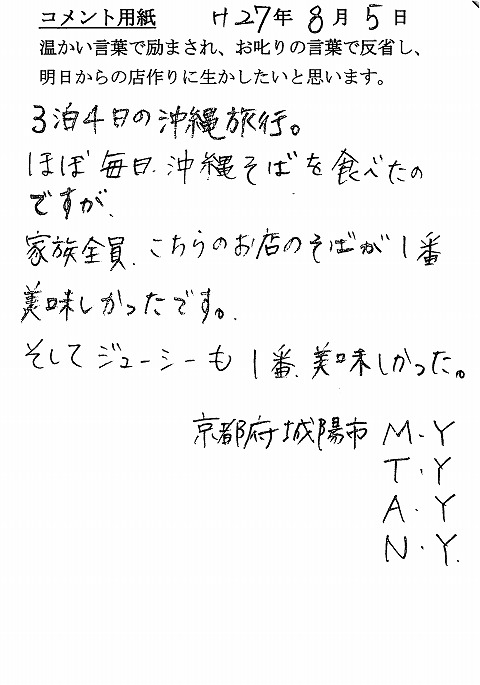 コメント用紙 H27年8月5日
温かい言葉で励まされ、お叱りの言葉で反省し、
明日からの店作りに生かしたいと思います。
3泊4日の沖縄旅行。
ほぼ毎日、沖縄そばを食べたの
ですが、
家族全員、こちらのお店のそばが1番
美味しかったです。
そしてジューシーも1番、美味しかった。
京都府城陽市 M.Y
T.Y
A.Y
N.Y.